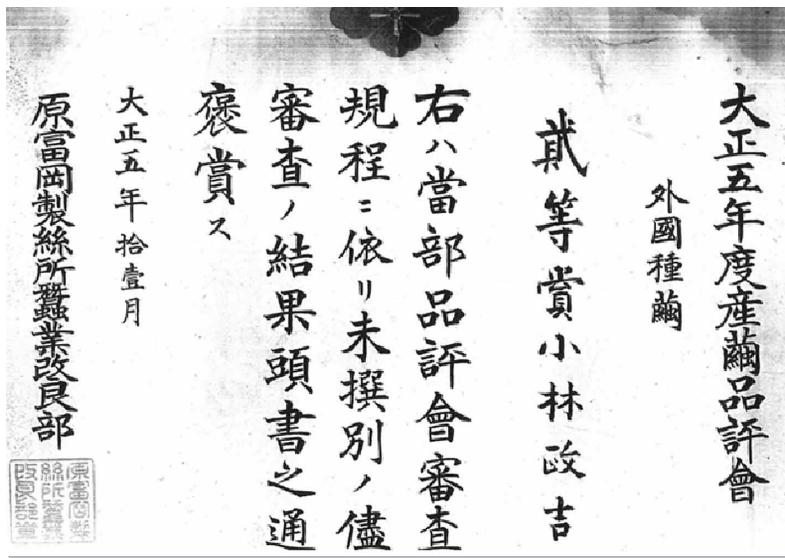 大正五年度産繭品評會
外國種繭
貳等賞小林政吉
右ハ當部品評會審査
規程ニ依リ未撰別ノ儘
審査ノ結果頭書之通
褒賞ス
大正五年拾壹月
原富岡製絲所蠶業改良部